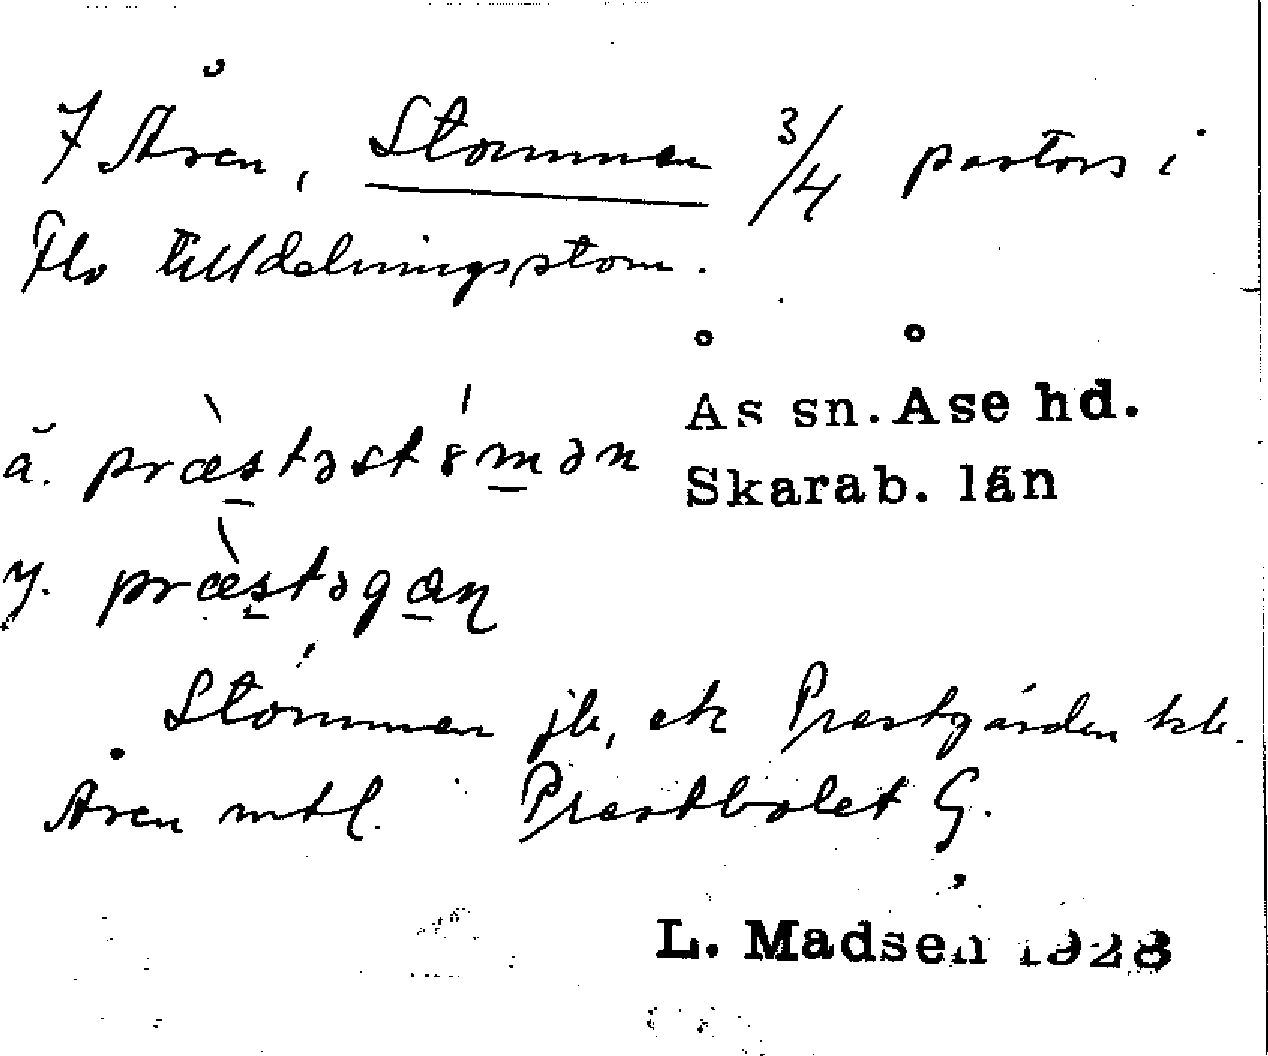 7 Åven, Stommen 3/4 pastors i
Flo tilldelningsstom.
Ås sn. Åse hd.
ä. præ̀stəstómən
Skarab. län
y. præ̀stəgaɳ
Stommen jb, ek Prestgården kb.
Åven mtl. Prestbolet G.
L. Madsen 1928